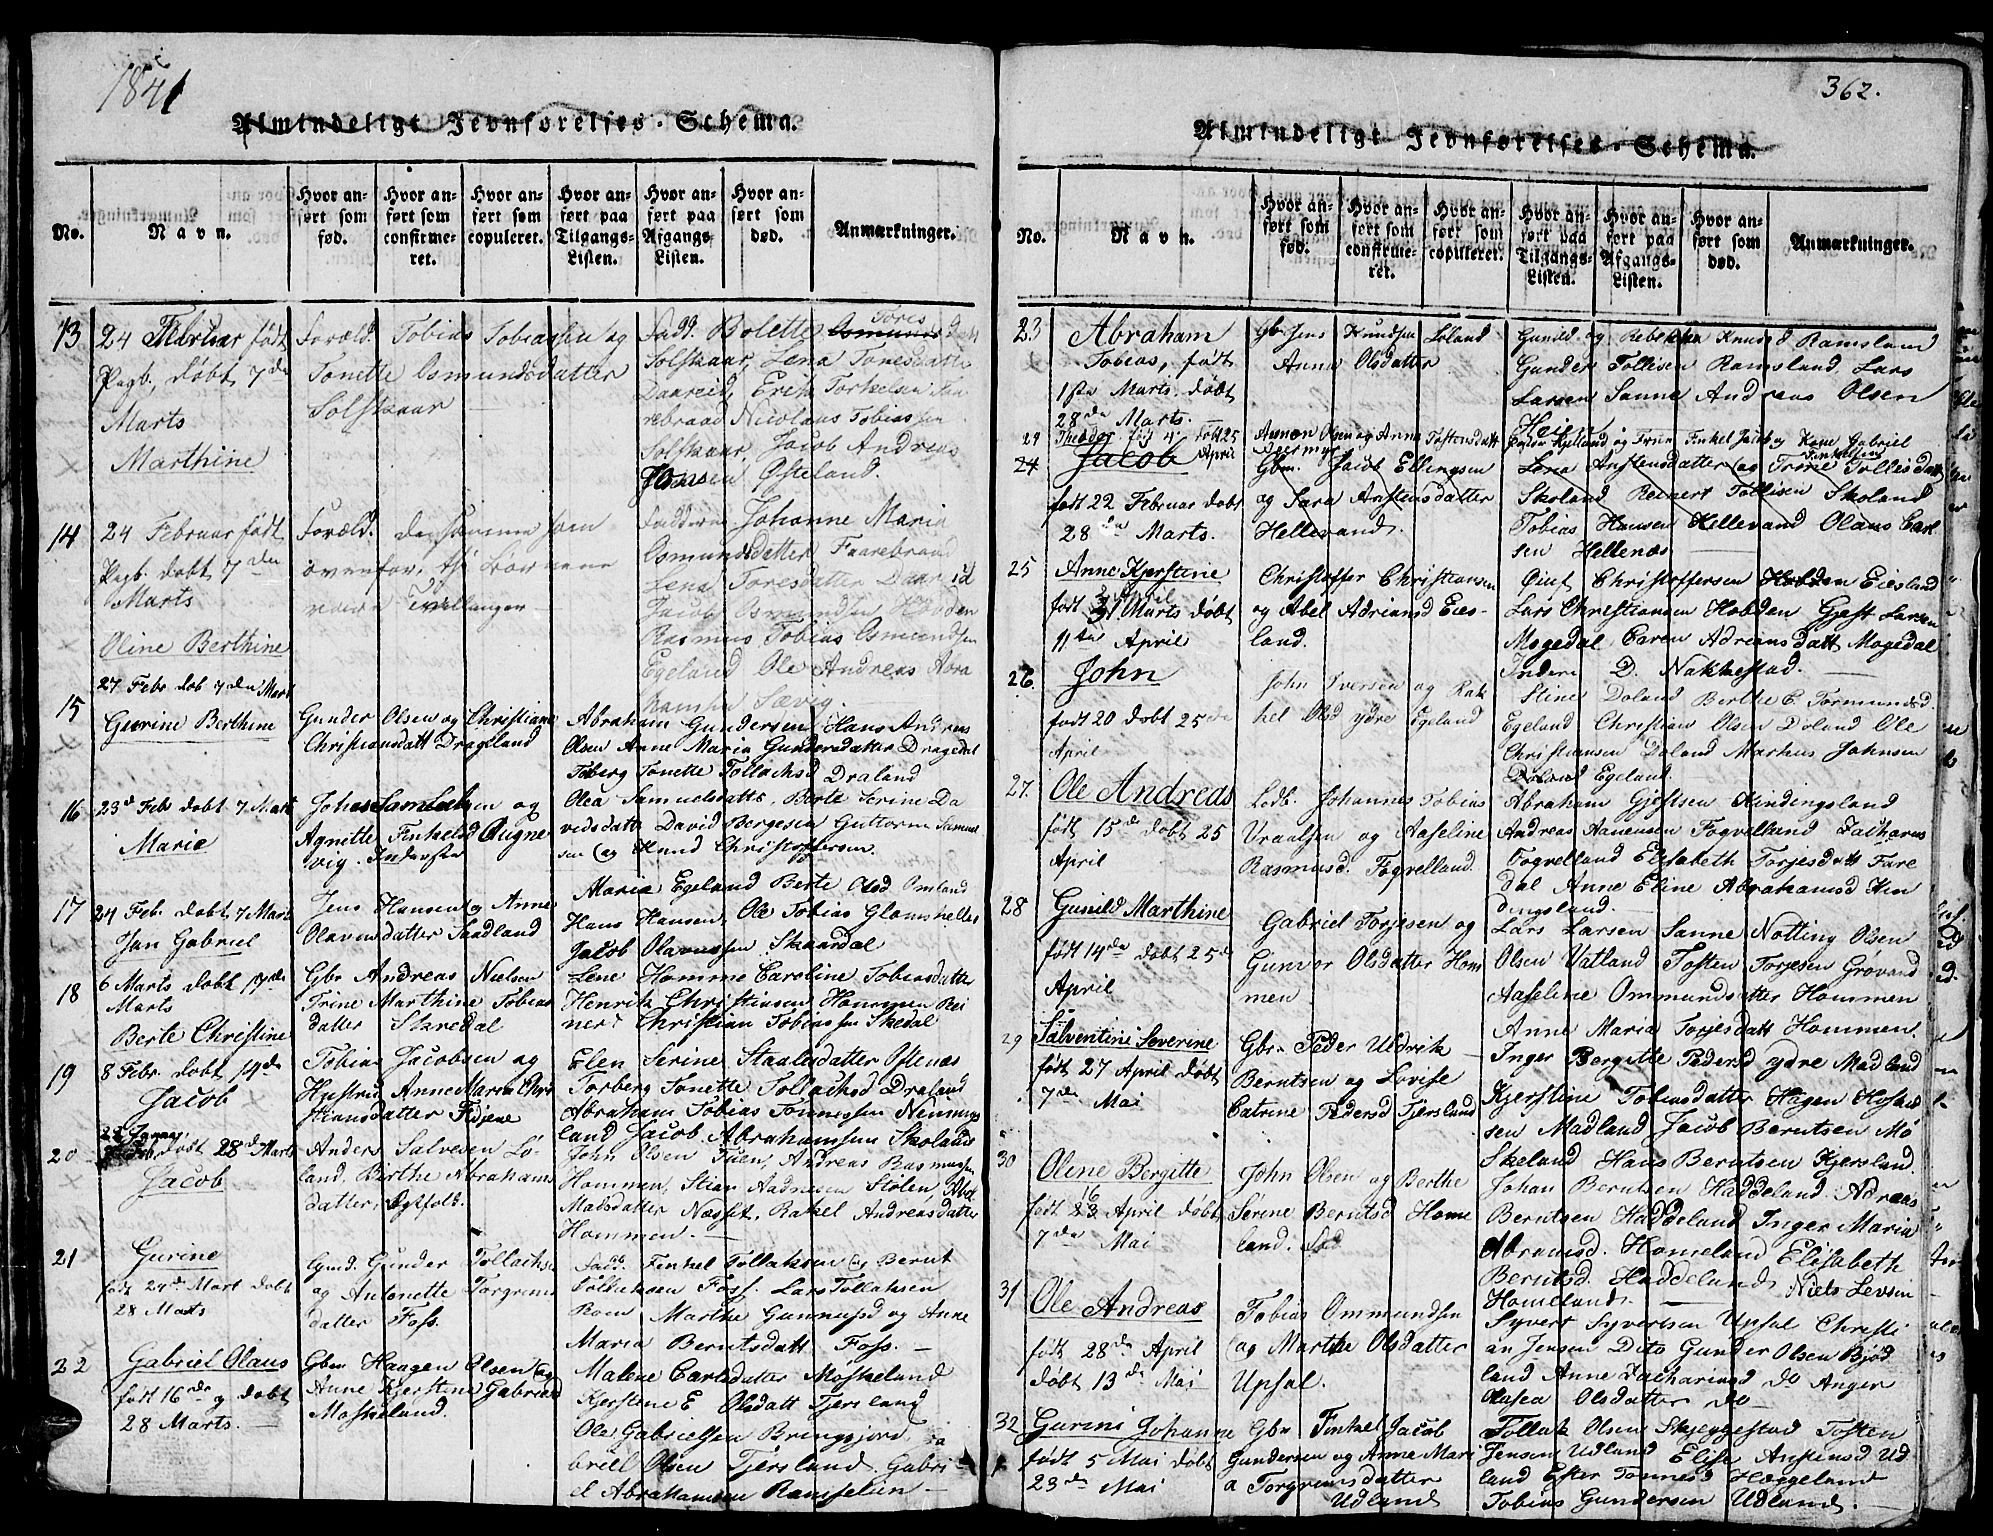 1841
Almindeligt Jevnførelses-Schema.
No.
Navn.
Hvor anført som fød.
Hvor anført som confirmeret.
Hvor anført som copuleret.
Hvor anført paa Tilgangs-Listen.
Hvor anført paa Afgangs-Listen.
Hvor anført som død.
Anmærkninger.
13
24 Februar født
Pagb. døbt 7de
Marts
Marthine
Foræld. Tobias Tobiassen og
Tonette Osmundsdatter
Solskaar
Fadd. Bolette Tores Datt
Solskaar, Lena Toresdatter
Daareid, Erik Torkelsen
Nicolaus Tobiassen
Solskaar, Jacob Andreas
Østeland.
14
24 Februar født
Pagb. døbt 7den
Marts
Oline Berthine
Foræld. de samme som
ovenfor, thi Børnene
Tvillinger
Faddere Johanne Maria
Osmundsdatter Faarebraad
Lena Toresdatter Daareid
Jacob Osmundsen
Rasmus Tobias Osmundsen
Egeland Ole Andreas Abra
hamsen Sævig.
15
27 Febr dob 7de Mart
Gurine Berthine
Gunder Olsen og Christiane
Christiansdatt Drageland
Abraham Gundersen Hans Andreas
Olsen Anne Maria Gundersdatter Dragedal
Toberg Tonette Tollachsd Draland
16
23d Febr dobt 7 Mart
Marie
Agnette Finkelsd Augne
vig.
Olea Samuelsdatt, Berte Serine Da
vidsdatt David Bergesen Guttorm Samuel
sen og Knud Christoffersen.
17
24 Febr dobt 7 Mart
Jan Gabriel
Jens Hansen og Anne
Olavesdatter Saadland
Marie Egeland Berte Olsd Omland
Hans Hansen, Ole Tobias Glomshelles
Jacob Olavussen Skaardal
18
6 Marts dobt 17de
Marts
Berte Christine
Gbr Andreas Nielsen
Trine Marthine Tobias
datter Skredal
Lene Homme Caroline Tobiasdatter
Henrik Christensen Hommen Rei
nert Christian Tobiassen Skedal
19
8 Febr dobt 14de
Jacob
Tobias Jacobsen og
Hustru Anne Maria Chri
stiansdatter Fidjene
Elen Serine Staalesdatter Ostenæs
Torberg Tonette Tollachsd Draland
Abraham Tobias Tonnessen Nennings
land Jacob Abrahamsen Skoland
20
døbt 28de Marts
Jacob
Anders Salvesen Lø-
land, Birthe Abrahams
datter, Egtfolk.
John Olsen Tuen, Andreas Rasmussen
Hommen, Stian Aadnesen Stolen, Abel
Madsdatter Næsset, Rakel Andreasdatter
Hommen.
21
Gurine
født 24de Mart dobt
28 Marts
Gmd. Gunder Tollachsen
og Antonette Torgrims
datter Foss.
Fadd: Finkel Tollaksen og Bernt
Foss. Lars Tollaksen
Roen Marthe Gunnufsd og Anne
Maria Berntsdatt Foss.
22
Gabriel Olaus
født 16de og dobt
28 Marts.
Gbm Haagen Olsen og
Anne Kjerstene Gabrielsd
Moskeland.
Malene Carlsdatter Moskeland
Kjerstene E Olsdatt Tjersland
Ole Gabrielsen Bringsjord, Ga
briel Olsen Tjersland, Gabri
el Abrahamsen Ramslien
362.
Almindeligt Jevnførelses-Schema.
No.
Navn.
Hvor anført som fød.
Hvor anført som confirmeret.
Hvor anført som copuleret.
Hvor anført paa Tilgangs-Listen.
Hvor anført paa Afgangs-Listen.
Hvor anført som død.
Anmærkninger.
23
Abraham
Tobias, født
1ste Marts. døbt
28de Marts.
Gbr Jens Knudsen Loland
Anna Olsdatter
Gunild og Rebekka Knusd Ramsland
Gunder Tollisen Ramsland, Lars
Larsen Sanne Andreas Olsen
24
Theodor fød 4 dobt 25 April
Aamon Olsen og Anne Tostensdatt
24
Jacob
født 22 Februar dobt
28de Marts.
Gbm. Jacob Ellingsen
og Sara Anstensdatter
Hellevand.
Lena Anstensdatter og Trine Tollisdatt
Skoland Reinert Tollisen Skoland
Tobias Hansen Hellevand Olaus Carl
sen Hellenæs
25
Anne Kjerstine
født 31 Marts døbt
11te April
Christoffer Christiansen
og Abel Adriansd Eies-
land.
Qiuf Christoffersen Eiesland
Lars Christiansen Hobden Gjest Larsen
Mogedal Caren Adreansdatt Mogedal
Indere D. Nakkestad.
26.
John
født 20 dobt 25de
April
John Iversen og Rak
hel Olsd ydre Egeland
Stine Doland Berthe C. Tormunsd.
Egeland Christian Olsen Doland Ole
Christiansen Doland Markus Johnsen
Egeland.
27.
Ole Andreas
født 15de dobt 25
April
Ledb. Johannes Tobias
Vraalsen og Aaseline
Rasmusd. Fogvelland.
Abraham Gjestsen Kindingsland
Andreas Aanensen Fogvelland Zacharias
Fogvelland Elisabeth Torjesdatt Fare
dal Anne Eline Abrahamsd Kin
dingsland.
28
Gunild Marthine
født 14de dobt 25de
April
Gabriel Torjesen og
Gunvor Olsdatter Hom
men
Lars Larsen Sanne Notting Olsen
Olsen Vatland Tosten Torjesen Grøvand
Aaseline Ommundsdatter Hommen
Anne Maria Torjesdatt Hommen.
29
Salventini Severine
født 27 April døbt
7de Mai
Gbr. Peder Uldrik
Berntsen og Lovise
Catrine Pedersd Tjersland
Inger Bergitte Pedersd ydre Madland
Kjerstine Tobiasdatter Hagen Hoskeld
sen Madland Jacob Berntsen Mø
skeland Hans Berntsen Kjersland.
30
Olene Bergitte
født 16 April døbt
7de Mai
John Olsen og Berthe
Serine Berntsd Home
land.
Johan Berntsen Haddeland Adreas
Berntsen Haddeland Inger Maria
Abramsd. Homeland Elisabeth
Berntsd. Haddeland Niels Levsen
Homeland.
31
Ole Andreas
født 28de April
døbt 13de Mai
Tobias Ommundsen
og Marthe Olsdatter
Upsal.
Syvert Syvertsen Upsal Christi
an Jensen Dito Gunder Olsen Bjød
land Anne Zachariasd do Anger
Olasea Olsdatter do
32
Gurini Johanne
født 5 Mai døbt
23de Mai
Gbr Finkel Jacob
Gundersen og Anne Mari
a Torgremsdatter
Udland
Tollak Olsen Skjeggestad Tosten
Jensen Udland Elise Anstensd Ud
land Ester Tonnesd Hæggeland
Tobias Gundersen Udland.